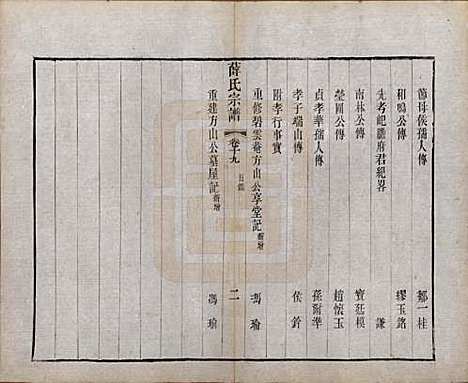 節母侯孺人傳 鄒一桂
和鳴公傳 繆玉銘
先考岯瞻府君紀畧 謙
南林公傳 竇廷模
瑩圃公傳 趙懷玉
貞孝華孺人傳 孫爾準
孝子瑞山傳 侯鈐
附孝行事實
重修碧雲菴方山公享堂記 新增 馮瑜
薛氏宗譜 卷十九 目錄 二
重建方山公墓屋記 新增 馮瑜